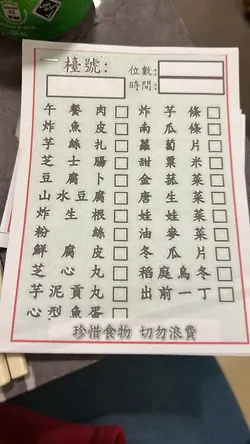 檯號:
位數:
時間:
午餐肉 炸芋條
炸魚皮 南瓜條
芋絲 蘿蔔片
芝士腸 甜粟米
豆腐卜 金菇菜
山水豆腐 唐生菜
炸生根 娃娃菜
粉絲 油麥菜
鮮腐皮 冬瓜片
芝心丸 稻庭烏冬
芋泥貢丸 出前一丁
心型魚蛋
珍惜食物 切勿浪費